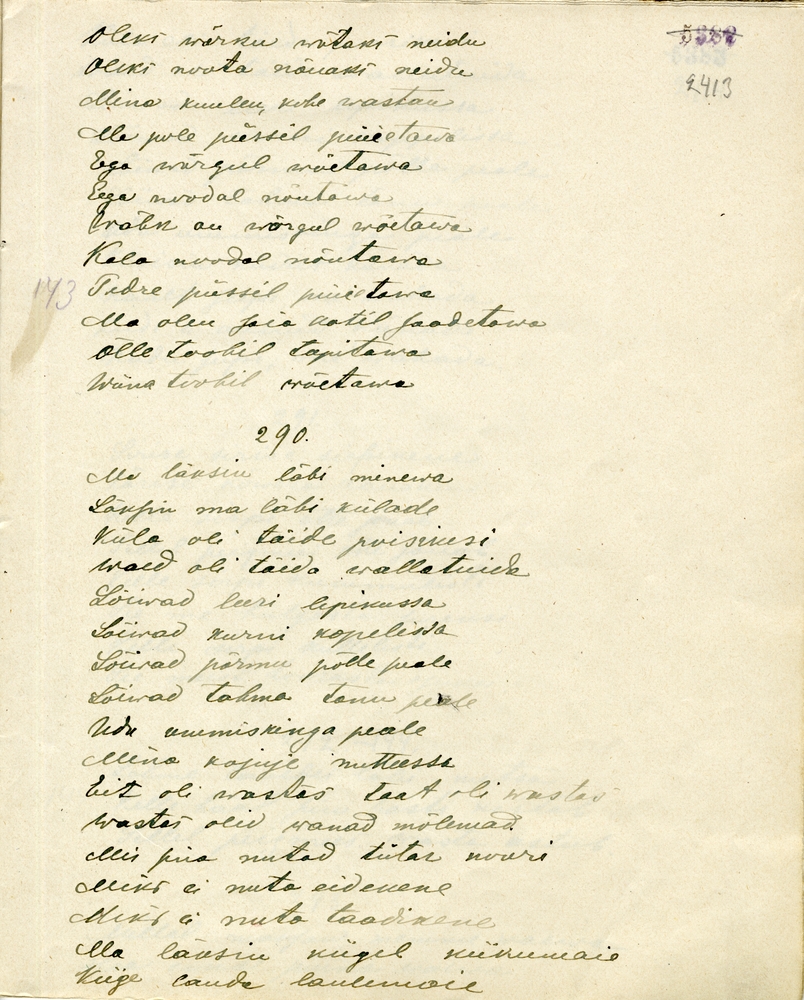 5382
2413
Oleks wõrku wõtaks neidu
Oleks noota nõuaks neidu
Mina kuulen, kohe wastan
Ma pole püssil püietawa
Ega wõrgul wõetawa
Ega noodal nõutawa
Wähk on wõrgul wõetawa
Kala noodal nõutawa
173
Tedre püssil püietawa
Ma olen saia kotil saadetawa
Õlle toobil tapitawa
Wiina toobil wõetawa
290.
Ma läksin läbi minewa
Läksin ma läbi külade
Küla oli täide poisikesi
Waed oli täida wallatuida
Lõiwad leeri lepikussa
Lõiwad kurni kopelissa
Lõiwad põrmu põlle peale
Lõiwad tahma tanu peale
Udu uumiskinga peale
Mina kojuje nuttessa
Eit oli wastas taat oli wastas
Wastas olid wanad mõlemad
Mis sina nutad tütar noori
Miks ei nuta eidekene
Miks ei nuta taadikene
Ma läksin kiigel kiikumaie
Kiige lauda laulemaie